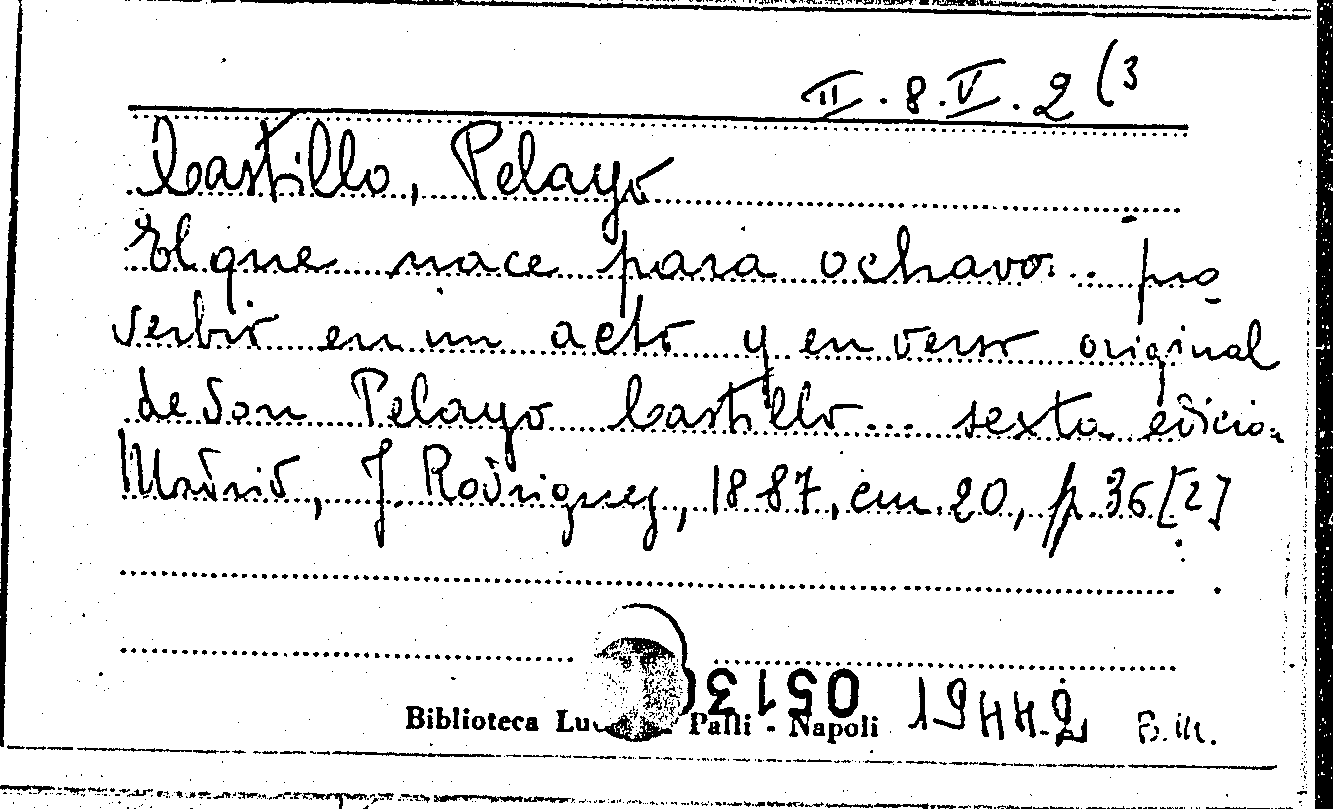 II.8.V.2(3
Castillo, Pelayo
El que nace para ochavo... pro
verbio en un acto y en verso original
de Don Pelayo Castillo... sexta edicion
Madrid, J. Rodriguez, 1887, cm. 20, p. 36 [2]
05130 19442 B.M.
Biblioteca Palli - Napoli